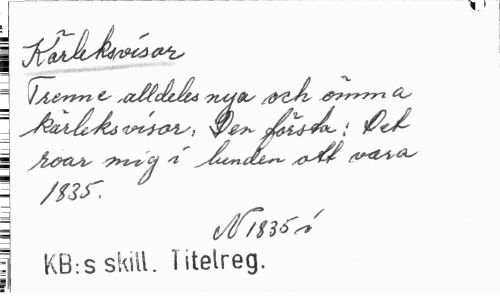 Kärleksvisor
Trenne alldeles nya och ömma
kärleksvisor. Den första: Det
roar mig i lunden att vara
1835.
N 1835 i
KB:s skill. Titelreg.